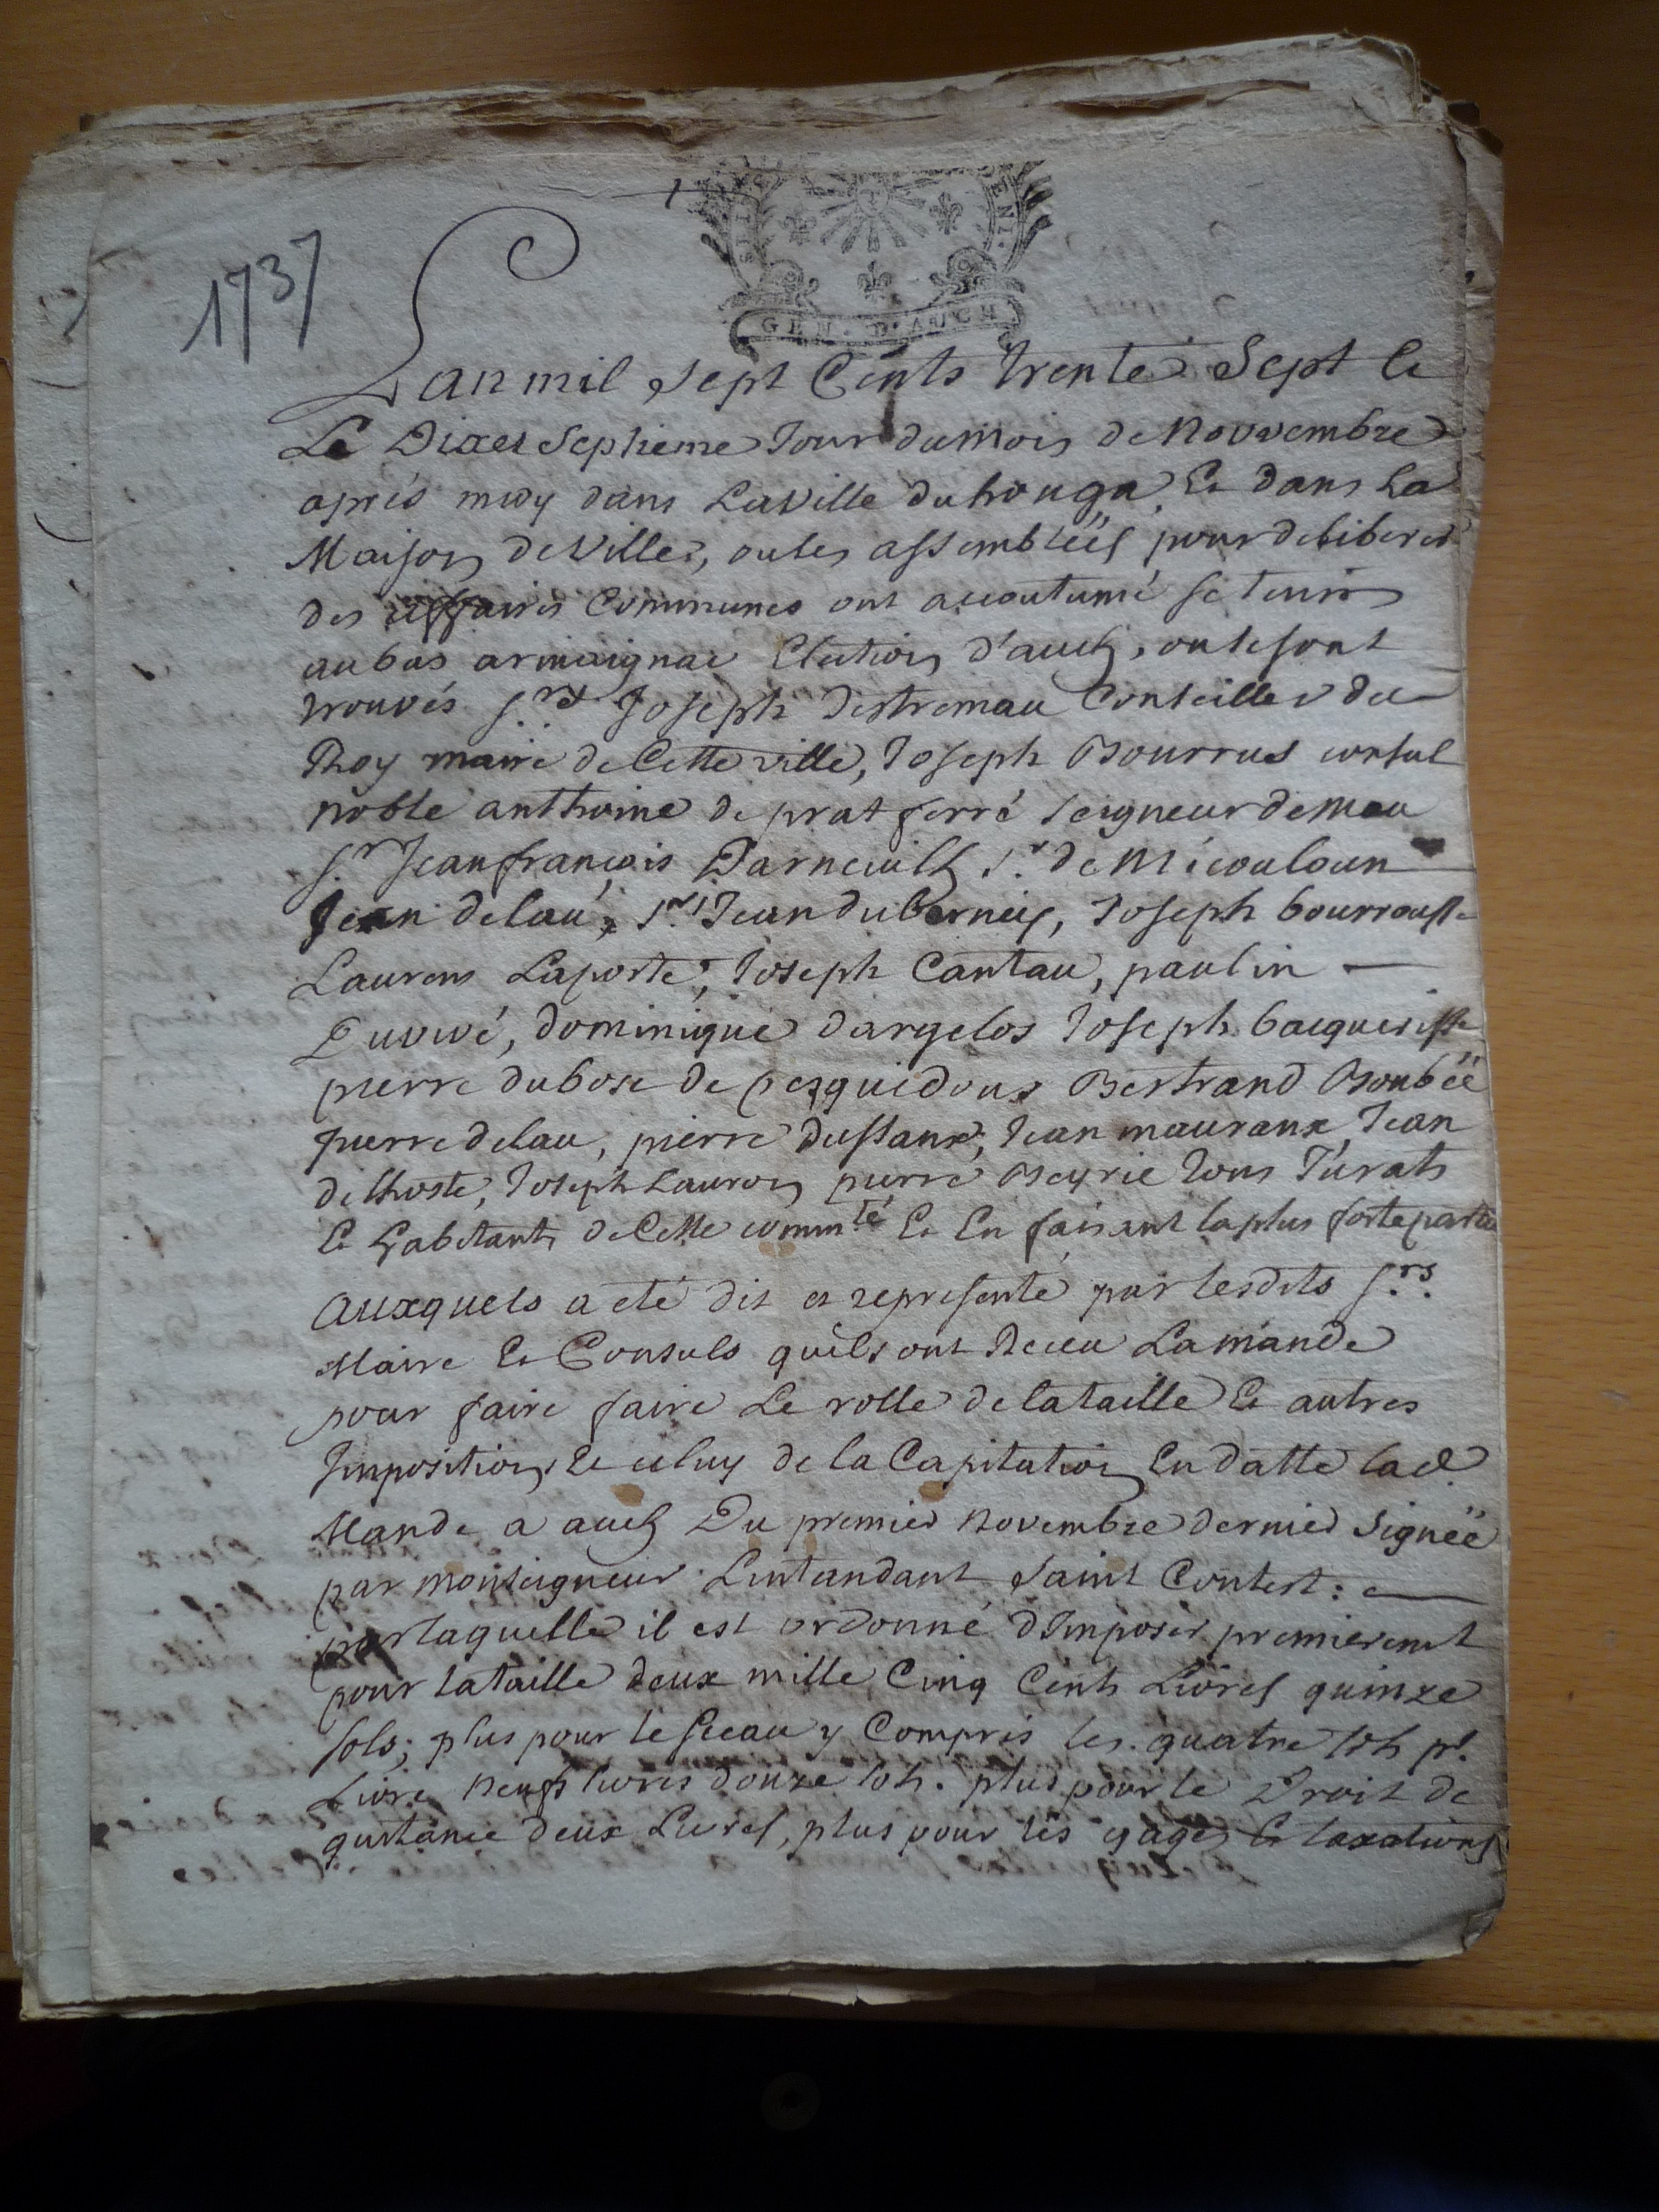 1737
GEN. D'AUCH
Lan mil sept Cents trente Sept & 
Le Dixet Septieme Jour du mois de Novvembre
aprés midy dans La Ville du houga, & dans La
Maison de Ville, ou les assembléés pour deliberer
des affaires Communes ont acoutumé se tenir
au bas armaignac Election d'auch, ou se sont
trouvés Joseph destremau Conseiller du
Roy maire de Cette ville, Joseph Bourrus consul
noble anthoine de prat ferré seigneur de Mau
Sr. Jean françois Darneuilh Sr. de Micouloun
Jean delau, Sr. Jean duberneis, Joseph bourrousse
Laurens Laporte, Joseph Cantau, paulin
Duvivé, dominique dargelos Joseph bacquerisse
pierre dubosc de pesquidoux Bertrand Boubéé
pierre delau, pierre dussaux, Jean mauraux, Jean
delhoste, Joseph Lauron pierre Beyrie tous Jurats
& habitants de Cette commté & En faisant la plus forte partie
Auxquels a eté dit et representé par lesdits Srs.
Maire & Consuls quils ont Receu La mande
pour faire faire Le rolle de la taille & autres
Impositions & celuy de la Capitation En datte lad.
Mande a auch Du premier Novembre dernier Signéé
par monseigneur Lintandant Saint Contest:
par laquelle il est ordonné dImposer premierent
pour la taille deux mille Cinq Cents Livres quinze
sols; plus pour le sceau y Compris les quatre sols pr.
Livre neuf livres douze sols. plus pour le Droit de
quitance deux Livres, plus pour les gages & taxations